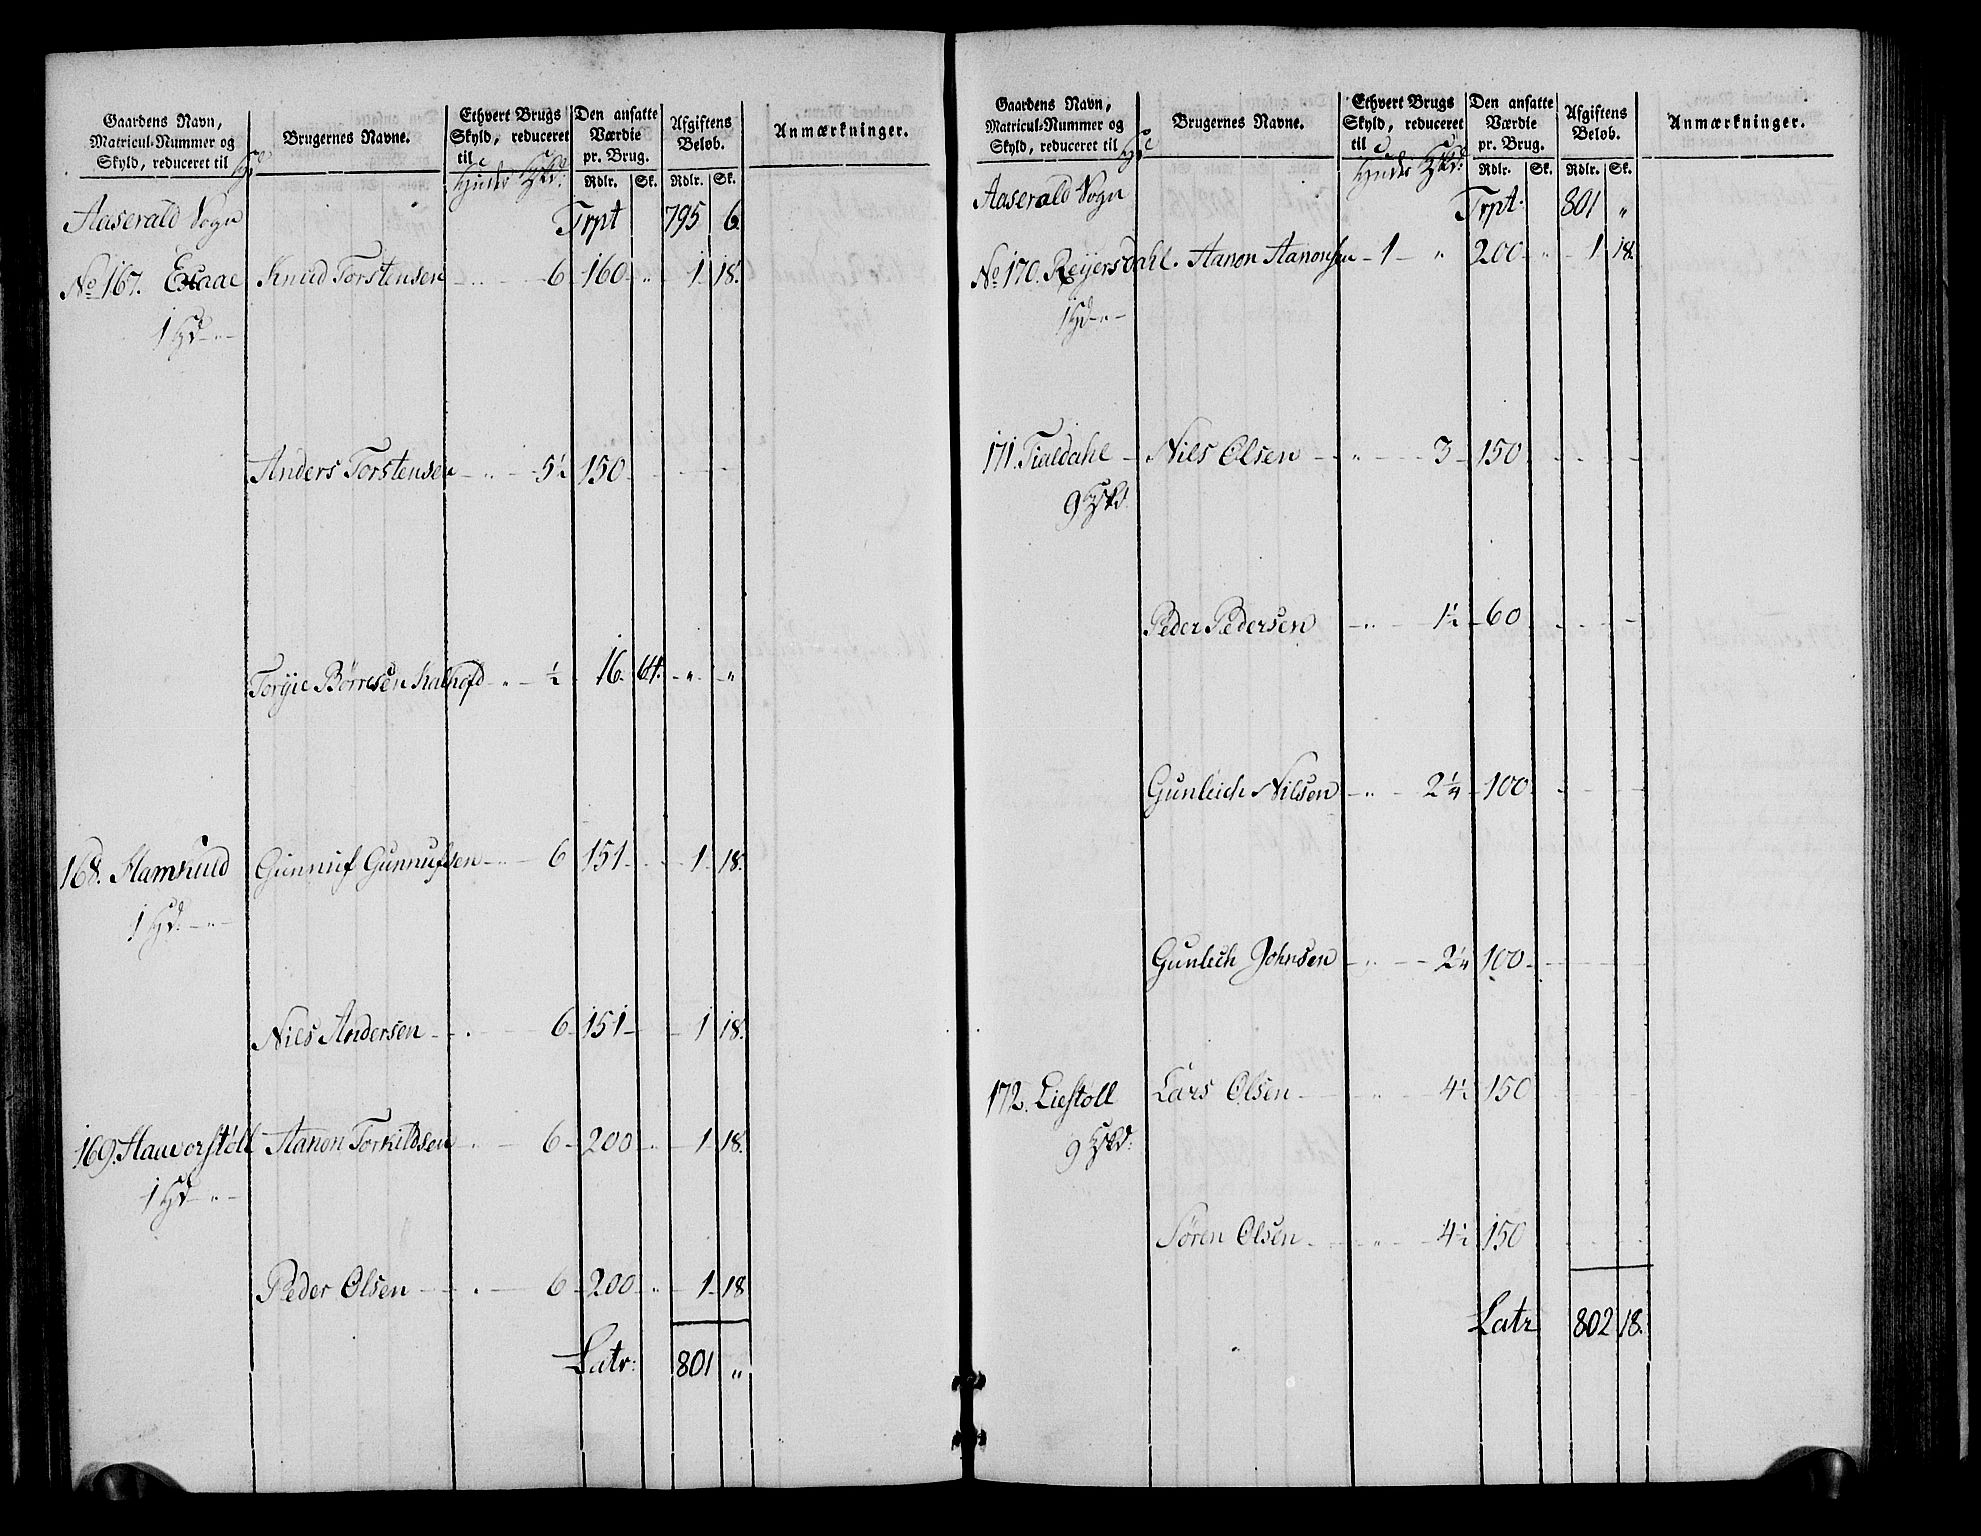 Gaardens Navn, Matricul-Nummer og Skyld, reduceret til
Brugernes Navne.
Ethvert Brugs Skyld, reduceret til Huder
Den ansatte Værdie pr. Brug.
Rdlr. Sk.
Afgiftens Belob.
Rdlr. Sk.
Anmærkninger.
Aaserald Sogn Trpt 795 6
No 167. Knud Torstensen - „ - 6 160 „ 1 18.
1 Hd - „ -
Anders Torstensen - „ - 5½ 150 - - -
Torgie Börresen - „ - ½ 16. 64. - „ - „
168. Gunnuf Gunnufsen - „ - 6 151 - - 1 18.
1 Hd. - „ -
Nils Andersen - - 6 151 - - 1 18.
169. Hauvorstöll Aanon Torkildsen „ - 6 200 „ 1 18.
1 Hd - „ -
Peder Olsen - - 6 200 „ 1 18
Latr: 801 „
Gaardens Navn, Matricul-Nummer og Skyld, reduceret til
Brugernes Navne.
Ethvert Brugs Skyld, reduceret til Huder
Den ansatte Værdie pr. Brug.
Rdlr. Sk.
Afgiftens Belob.
Rdlr. Sk.
Anmærkninger.
Aaserald Sogn Trpt. 801 „
No 170. Reijersdahl. Aanon Aanonsen - 1 - „ 200 „ 1 18.
1 Hd - „ -
171. Nils Olsen - „ - 3 - 150 - - -
9
Peder Pedersen - „ - 1½ - 60 - - -
Gunleich Nilsen - „ - 2¼ - 100 - - -
Gunlech Johnsen - „ - 2¼ 100 - - -
172. Liestoll Lars Olsen - „ - 4½ 150 - - -
9
Sören Olsen - „ - 4½ 150 - - -
Latr 802 18.